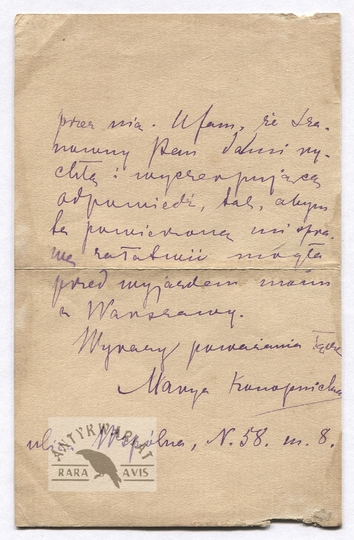 przez nia. Ufam, że Sza-
nowny Pan da mi ry-
chłą i wyczerpującą
odpowiedź, tak, abym
tę powierzoną mi spra-
wę załatwić mogła
przed wyjazdem moim
z Warszawy.
Wyrazy poważania łączę
Marya Konopnicka
ulica Wspólna, N. 58. m. 8.
ANTYKWARIAT
RARA AVIS